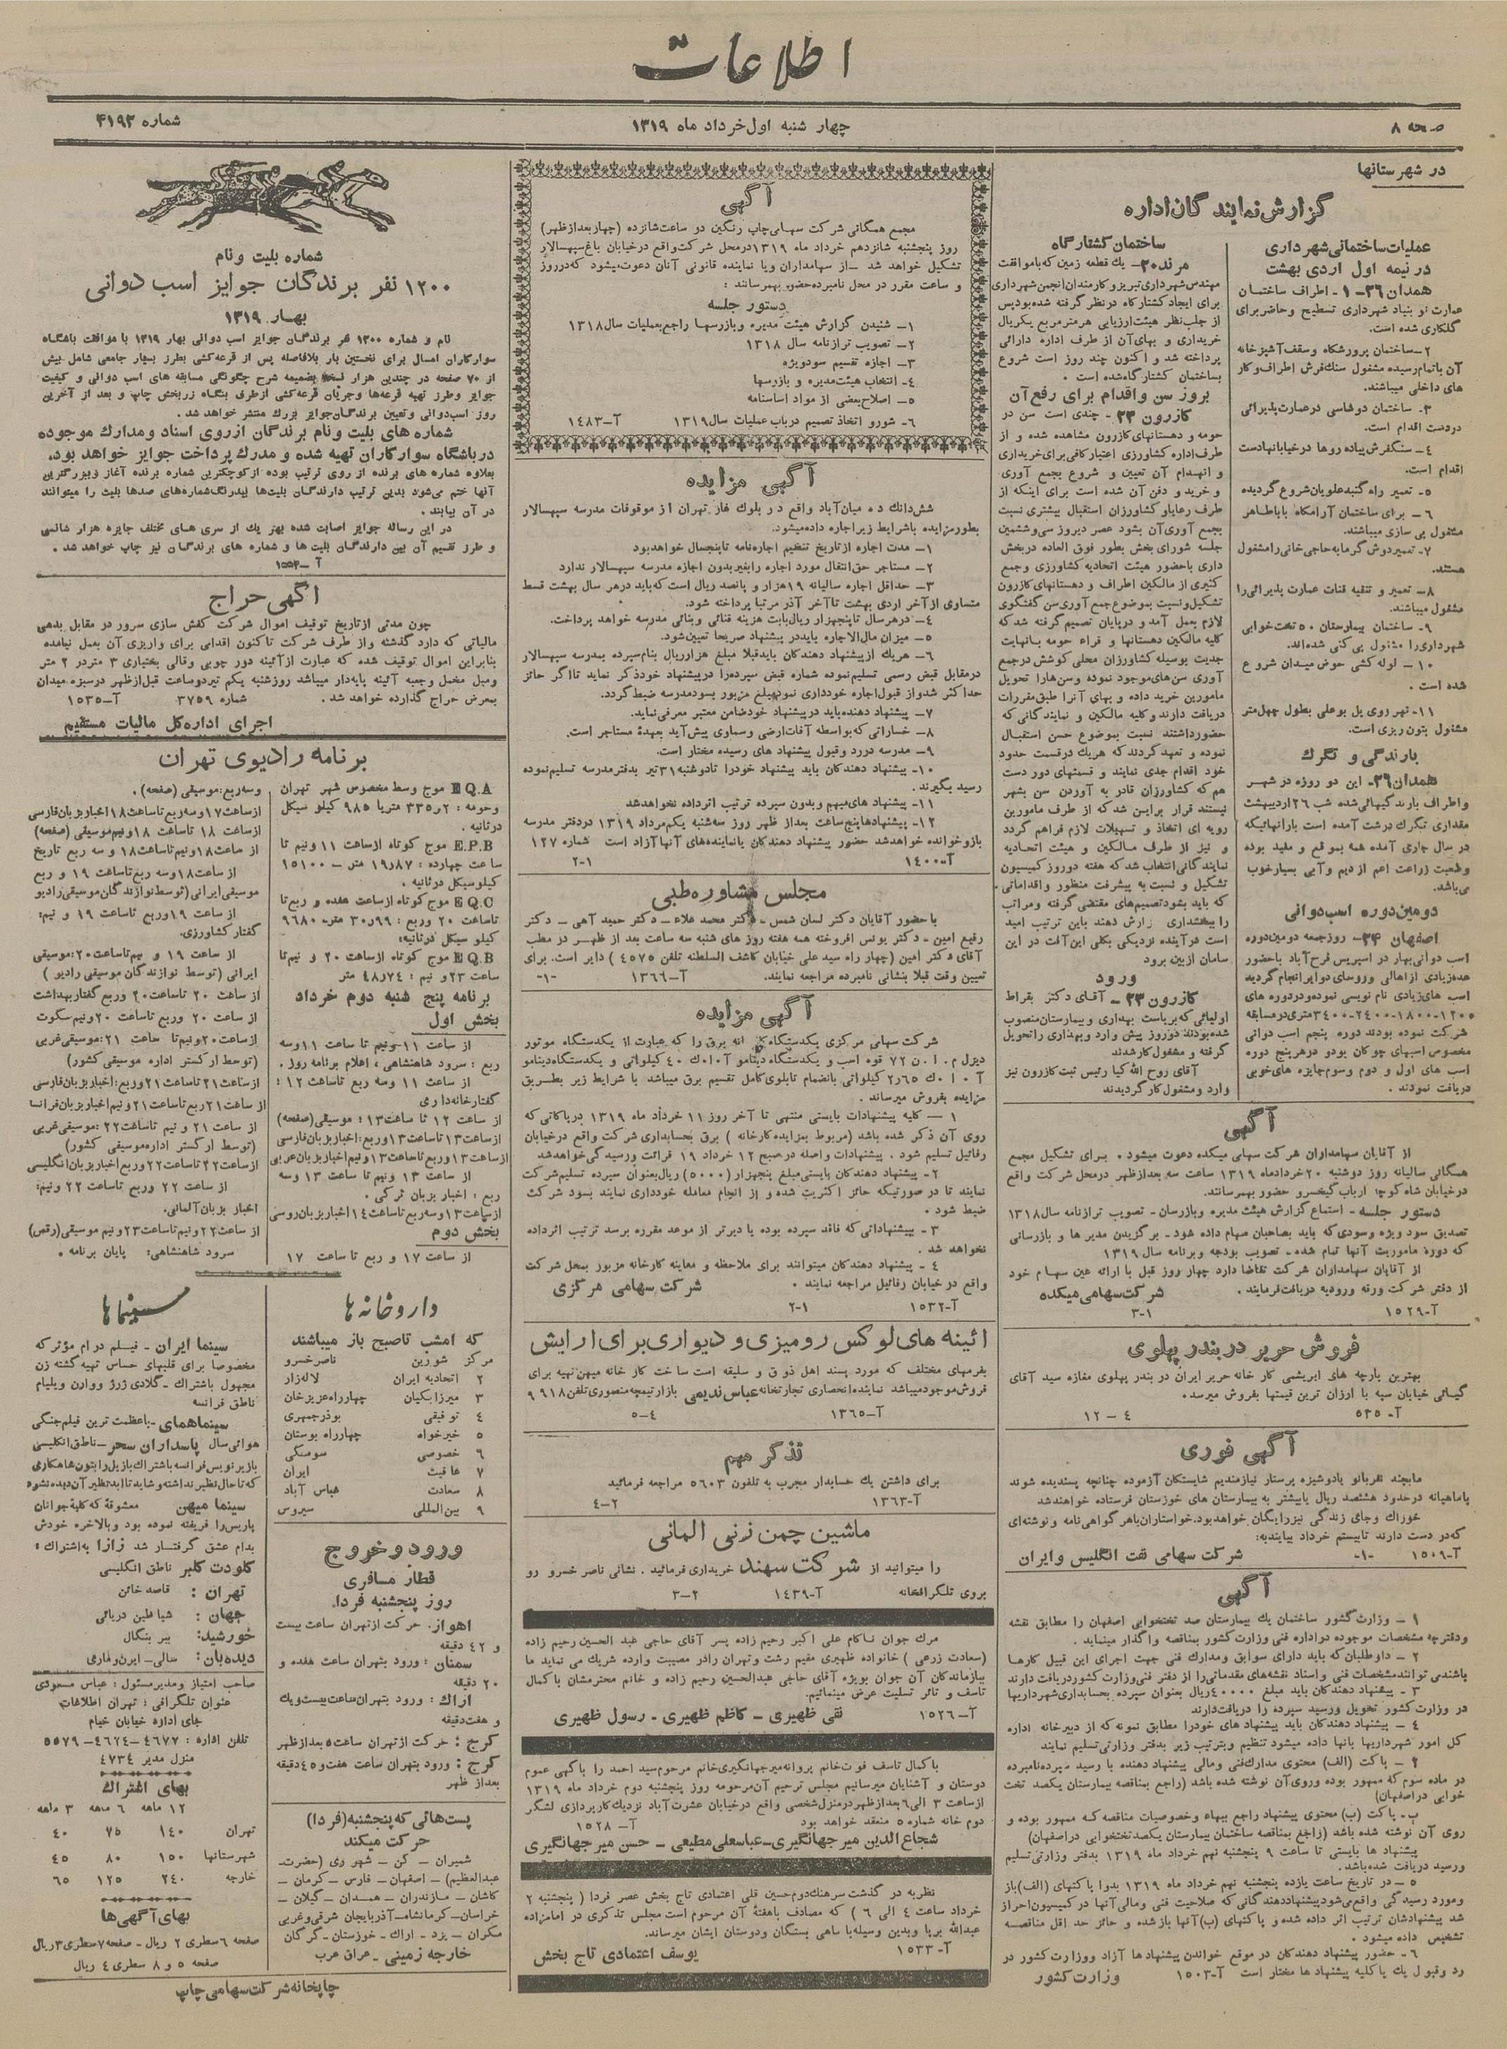 اطلاعات
صفحه ۸
چهار شنبه اول خرداد ماه ۱۳۱۹
شماره ۴۱۹۲
در شهرستانها
گزارش نمایندگان اداره
عملیات ساختمانی شهرداری
در نیمه اول اردی بهشت
همدان ۲۶- ۱- اطراف ساختمان
عمارت نو بنیاد شهرداری تسطیح و حاضر برای
گلکاری شده است.
۲- ساختمان پرورشگاه و سقف آشپزخانه
آن باتمام رسیده مشغول سنك فرش اطراف و کار
های داخلی میباشند.
۳- ساختمان دوشاسی در عمارت پذیرائی
در دست اقدام است.
۴- سنگفرش پیاده روها در خیابانها دست
اقدام است.
۵- تعمیر راه گنبد علویان شروع گردیده
۶- برای ساختمان آرامگاه باباطاهر
مشغول پی سازی میباشند.
۷- تعمیر دوش گرمابه حاجی خانی را مشغول
هستند.
۸- تعمیر و تنقیه قنات عمارت پذیرائی را
مشغول میباشند.
۹- ساختمان بیمارستان ۵۰ تخت خوابی
شهرداری را مشغول پی کنی شده اند.
۱۰- لوله کشی حوض میدان شروع
شده است.
۱۱- نهر روی پل بوعلی بطول چهل متر
مشغول بتون ریزی است.
بارندگی و تگرگ
همدان ۲۹- این دو روزه در شهر
و اطراف بارندگیهائی شده شب ۲۶ اردیبهشت
مقداری تگرگ درشت آمده است بارانهائیکه
در سال جاری آمده همه بموقع و مفید بوده
وضعیت زراعت اعم از دیم و آبی بسیار خوب
می باشد.
دومین دوره اسب دوانی
اصفهان ۲۴- روز جمعه دومین دوره
اسب دوانی بهار در اسپریس فرح آباد با حضور
عده زیادی از اهالی و روسای دوایر انجام گردید
اسب های زیادی نام نویسی نموده و در دوره های
۱۲۰۰-۱۸۰۰-۲۴۰۰-۳۴۰۰ متری در مسابقه
شرکت نموده بودند دوره پنجم اسب دوانی
مخصوص اسبهای چوکان بودو در هر پنج دوره
اسب های اول و دوم و سوم جایزه های خوبی
دریافت نمودند.
ساختمان کشتارگاه
مرند ۲۰- یك قطعه زمین که با موافقت
مهندس شهرداری تبریز و کارمندان انجمن شهرداری
برای ایجاد کشتارگاه در نظر گرفته شده بود پس
از جلب نظر هیئت ارزیابی هر متر مربع یکریال
خریداری و بهای آن از طرف اداره دارائی
پرداخته شد و اکنون چند روز است شروع
بساختمان کشتارگاه شده است.
بروز سن و اقدام برای رفع آن
کازرون ۲۳- چندی است سن در
حومه و دهستانهای کازرون مشاهده شده و از
طرف اداره کشاورزی اعتبار کافی برای خریداری
و انهدام آن تعیین و شروع بجمع آوری
و خرید و دفن آن شده است برای اینکه از
طرف رعایا و کشاورزان استقبال بیشتری نسبت
بجمع آوری آن بشود عصر دیروز سی و ششمین
جلسه شورای بخش بطور فوق العاده در بخش
داری با حضور هیئت اتحادیه کشاورزی و جمع
کثیری از مالکین اطراف و دهستانهای کازرون
تشکیل و نسبت بموضوع جمع آوری سن گفتگوی
لازم بعمل آمد و در پایان تصمیم گرفته شد که
کلیه مالکین دهستانها و قراء حومه با نهایت
جدیت بوسیله کشاورزان محلی کوشش در جمع
آوری سن های موجود نموده و سن هارا تحویل
مامورین خرید داده و بهای آنرا طبق مقررات
دریافت دارند و کلیه مالکین و نمایندگانی که
حضور داشتند نسبت بموضوع حسن استقبال
نموده و تعهد کردند که هریك در قسمت حدود
خود اقدام جدی نمایند و قسمتهای دور دست
هم که کشاورزان قادر به آوردن سن بشهر
نیستند قرار براین شد که از طرف مامورین
رویه ای اتخاذ و تسهیلات لازم فراهم گردد
و نیز از طرف مالکین و هیئت اتحادیه
نمایندگانی انتخاب شد که هفته دو روز کمیسیون
تشکیل و نسبت به پیشرفت منظور و اقداماتی
که باید بشود تصمیم های مقتضی گرفته و مراتب
را ببخشداری گزارش دهند باین ترتیب امید
است در آینده نزدیکی بکلی این آفت در این
سامان از بین برود
ورود
کازرون ۲۳- آقای دکتر بقراط
اولیائی که بریاست بهداری و بیمارستان منصوب
شده بودند دو روز پیش وارد و بهداری را تحویل
گرفته و مشغول کار شدند
آقای روح الله کیا رئیس ثبت کازرون نیز
وارد و مشغول کار گردیدند
آگهی
از آقایان سهامداران شرکت سهامی میکده دعوت میشود. برای تشکیل مجمع
همگانی سالیانه روز دوشنبه ۲۰ خرداد ماه ۱۳۱۹ ساعت سه بعد از ظهر در محل شرکت واقع
در خیابان شاه کوچه ارباب کیخسرو حضور بهمرسانند.
دستور جلسه- استماع گزارش هیئت مدیره و بازرسان- تصویب ترازنامه سال ۱۳۱۸
تصدیق سود ویژه و سودی که باید بصاحبان سهام داده شود- برگزیدن مدیرها و بازرسانی
که دورهٔ ماموریت آنها تمام شده- تصویب بودجه و برنامه سال ۱۳۱۹
از آقایان سهامداران شرکت تقاضا دارد چهار روز قبل با ارائه عین سهام خود
از دفتر شرکت ورقه ورودیه دریافت فرمایند.
شرکت سهامی میکده
آ- ۱۵۲۹
۳-۱
فروش حریر در بندر پهلوی
بهترین پارچه های ابریشمی کارخانه حریر ایران در بندر پهلوی مغازه سید آقای
گیمائی خیابان سپه با ارزان ترین قیمتها بفروش میرسد.
آ- ۵۳۵
۱۲-۴
آگهی فوری
ما بچند نفر بانو یا دوشیزه پرستار نیازمندیم شایستگان آزموده چنانچه پسندیده شوند
با ماهیانه در حدود هشتصد ریال یا بیشتر به بیمارستان های خوزستان فرستاده خواهند شد
خوراك و جای زندگی نیز رایگان خواهد بود. خواستاران با هر گواهی نامه و نوشته ای
که در دست دارند تا بیستم خرداد بیایند به:
شرکت سهامی نفت انگلیس و ایران
آ- ۱۵۰۹
-۱-
آگهی
۱- وزارت کشور ساختمان یك بیمارستان صد تختخوابی اصفهان را مطابق نقشه
و دفترچه مشخصات موجوده در اداره فنی وزارت کشور بمناقصه واگذار مینماید.
۲- داوطلبان که باید دارای سوابق و مدارك فنی جهت اجرای این قبیل کارها
باشند می توانند مشخصات فنی و اسناد نقشه های مقدماتی را از دفتر فنی وزارت کشور دریافت دارند
۳- پیشنهاد دهندگان باید مبلغ ۴۰۰۰۰ ریال بعنوان سپرده بحسابداری شهرداریها
در وزارت کشور تحویل و رسید سپرده را دریافت دارند
۴- پیشنهاد دهندگان باید پیشنهاد های خود را مطابق نمونه که از دبیرخانه اداره
کل امور شهرداریها بآنها داده میشود تنظیم و بترتیب زیر بدفتر وزارتی تسلیم نمایند
۲- پاکت (الف) محتوی مدارك فنی و مالی پیشنهاد دهنده با رسید سپرده نامبرده
در ماده سوم که ممهور بوده و روی آن نوشته شده باشد (راجع بمناقصه بیمارستان یکصد تخت
خوابی در اصفهان)
ب- پاکت (ب) محتوی پیشنهاد راجع ببهاء و خصوصیات مناقصه که ممهور بوده و
روی آن نوشته شده باشد (راجع بمناقصه ساختمان بیمارستان یکصد تختخوابی در اصفهان)
پیشنهاد ها بایستی تا ساعت ۹ پنجشنبه نهم خرداد ماه ۱۳۱۹ بدفتر وزارتی تسلیم
و رسید دریافت شده باشد.
۵- در تاریخ ساعت یازده پنجشنبه نهم خرداد ماه ۱۳۱۹ بدوا پاکتهای (الف) باز
و مورد رسیدگی واقع میشود پیشنهاد دهندگانی که صلاحیت فنی و مالی آنها در کمیسیون احراز
شد پیشنهادشان ترتیب اثر داده شده و پاکتهای (ب) آنها باز شده و حائز حد اقل مناقصه
تشخیص داده میشود.
۶- حضور پیشنهاد دهندگان در موقع خواندن پیشنهاد ها آزاد و وزارت کشور در
رد و قبول یك یا کلیه پیشنهاد ها مختار است
آ- ۱۵۰۳
وزارت کشور
آگهی
مجمع همگانی شرکت سهامی چاپ رنگین دو ساعت شانزده (چهار بعد از ظهر)
روز پنجشنبه شانزدهم خرداد ماه ۱۳۱۹ در محل شرکت واقع در خیابان باغ سپهسالار
تشکیل خواهد شد- از سهامداران و یا نماینده قانونی آنان دعوت میشود که در روز
و ساعت مقرر در محل نامبرده حضور بهمرسانند:
دستور جلسه
۱- شنیدن گزارش هیئت مدیره و بازرسها راجع بعملیات سال ۱۳۱۸
۲- تصویب ترازنامه سال ۱۳۱۸
۳- اجازه تقسیم سود ویژه
۴- انتخاب هیئت مدیره و بازرسها
۵- اصلاح بعضی از مواد اساسنامه
۶- شور و اتخاذ تصمیم در باب عملیات سال ۱۳۱۹
آ- ۱۴۸۳
آگهی مزایده
شش دانك ده میان آباد واقع در بلوك غار تهران از موقوفات مدرسه سپهسالار
بطور مزایده با شرایط زیر اجاره داده میشود.
۱- مدت اجاره از تاریخ تنظیم اجاره نامه تا پنجسال خواهد بود
۲- مستاجر حق انتقال مورد اجاره را بغیر بدون اجازه مدرسه سپهسالار ندارد
۳- حداقل اجاره سالیانه ۱۹ هزار و پانصد ریال است که باید در هر سال بهشت قسط
متساوی از آخر اردی بهشت تا آخر آذر مرتبا پرداخته شود.
۴- در هر سال تا پنجهزار ریال بابت هزینه قنائی و بنائی مدرسه خواهد پرداخت.
۵- میزان مال الاجاره باید در پیشنهاد صریحا تعیین شود.
۶- هریك از پیشنهاد دهندگان باید قبلا مبلغ هزار ریال بنام سپرده بمدرسه سپهسالار
در مقابل قبض رسمی تسلیم نموده شماره قبض سپرده را در پیشنهاد خود ذکر نماید تا اگر حائز
حداکثر شد و از قبول اجاره خودداری نمود مبلغ مزبور بسود مدرسه ضبط گردد.
۷- پیشنهاد دهنده باید در پیشنهاد خود ضامن معتبر معرفی نماید.
۸- خساراتی که بواسطه آفات ارضی و سماوی پیش آید بعهدهٔ مستاجر است.
۹- مدرسه در رد و قبول پیشنهاد های رسیده مختار است.
۱۰- پیشنهاد دهندگان باید پیشنهاد خود را تا دوشنبه ۳۱ تیر بدفتر مدرسه تسلیم نموده
رسید بگیرند.
۱۱- پیشنهاد های مبهم و بدون سپرده ترتیب اثر داده نخواهد شد
۱۲- پیشنهادها پنج ساعت بعد از ظهر روز سه شنبه یکم مرداد ۱۳۱۹ در دفتر مدرسه
باز و خوانده خواهد شد حضور پیشنهاد دهندگان یا نماینده های آنها آزاد است
شماره ۱۲۷
آ- ۱۴۰۰
۲-۱
مجلس مشاوره طبی
با حضور آقایان دکتر لسان شمس- دکتر محمد علاء- دکتر حمید آهی- دکتر
رفیع امین- دکتر یونس افروخته همه هفته روز های شنبه سه ساعت بعد از ظهر در مطب
آقای دکتر امین (چهار راه سید علی خیابان کاشف السلطنه تلفن ۴۵۷۵) دایر است. برای
تعیین وقت قبلا بنشانی نامبرده مراجعه نمایند.
آ- ۱۳۶۶
-۱-
آگهی مزایده
شرکت سهامی مرکزی یکدستگاه کارخانه برق را که عبارت از یکدستگاه موتور
دیزل م. ا. ن ۷۲ قوه اسب و یکدستگاه دینامو آ ا ك ۴۰ کیلواتی و یکدستگاه دینامو
آ ا ك ۲٫۶۵ کیلواتی بانضمام تابلوی کامل تقسیم برق میباشد با شرایط زیر بطریق
مزایده بفروش میرساند.
۱- کلیه پیشنهادات بایستی منتهی تا آخر روز ۱۱ خرداد ماه ۱۳۱۹ در پاکاتی که
روی آن ذکر شده باشد (مربوط بمزایده کارخانه) برق بحسابداری شرکت واقع در خیابان
رفائیل تسلیم شود. پیشنهادات واصله در صبح ۱۲ خرداد ۱۹ قرائت و رسیدگی خواهد شد
۲- پیشنهاد دهندگان بایستی مبلغ پنجهزار (۵۰۰۰) ریال بعنوان سپرده تسلیم شرکت
نمایند تا در صورتیکه حائز اکثریت شده و از انجام معامله خودداری نمایند بسود شرکت
ضبط شود.
۳- پیشنهاداتی که فاقد سپرده بوده یا دیرتر از موعد مقرره برسد ترتیب اثر داده
نخواهد شد.
۴- پیشنهاد دهندگان میتوانند برای ملاحظه و معاینه کارخانه مزبور بمحل شرکت
واقع در خیابان رفائیل مراجعه نمایند.
شرکت سهامی مرکزی
آ- ۱۵۳۲
۲-۱
آئینه های لوکس رومیزی و دیواری برای آرایش
بفرمهای مختلف که مورد پسند اهل ذوق و سلیقه است ساخت کارخانه میهن تهیه برای
فروش موجود میباشد نماینده انحصاری تجارتخانه عباس ندیمی بازار تیمچه منصوری تلفن ۹۹۱۸
آ- ۱۳۶۵
۵-۴
تذکر مهم
برای داشتن یك حسابدار مجرب به تلفون ۵۶۰۳ مراجعه فرمائید
آ- ۱۳۶۳
۴-۲
ماشین چمن زنی المانی
را میتوانید از شرکت سهند خریداری فرمائید. نشانی ناصر خسرو رو
بروی تلگرافخانه
آ- ۱۴۳۹
۳-۲
مرگ جوان ناکام علی اکبر رحیم زاده پسر آقای حاجی عبد الحسین رحیم زاده
(سعادت زرعی) خانواده ظهیری مقیم رشت و تهران را در مصیبت وارده شریك می نماید ما
ببازماندگان آن جوان بویژه آقای حاجی عبدالحسین رحیم زاده و خانم محترمشان با کمال
تاسف و تاثر تسلیت عرض مینمائیم.
آ- ۱۵۲۶
نقی ظهیری- کاظم ظهیری- رسول ظهیری
با کمال تاسف فوت خانم پروانه میرجهانگیری خانم مرحوم سید احمد را بآگهی عموم
دوستان و آشنایان میرسانیم مجلس ترحیم آن مرحومه روز پنجشنبه دوم خرداد ماه ۱۳۱۹
از ساعت ۳ الی ۶ بعد از ظهر در منزل شخصی واقع در خیابان عشرت آباد نزدیك کارپردازی لشگر
دوم خانه شماره ۵ منعقد خواهد بود
آ- ۱۵۲۸
شجاع الدین میرجهانگیری- عباسعلی مطیعی- حسن میرجهانگیری
نظر به در گذشت سرهنك دوم حسین قلی اعتمادی تاج بخش عصر فردا (پنجشنبه ۲
خرداد ساعت ۴ الی ۶) که مصادف با هفتهٔ آن مرحوم است مجلس تذکری در امامزاده
عبدالله برپا و بدین وسیله باسامی بستگان و دوستان ایشان میرساند.
آ- ۱۵۳۳
یوسف اعتمادی تاج بخش
شماره بلیت و نام
۱۲۰۰ نفر برندگان جوایز اسب دوانی
بهار ۱۳۱۹
نام و شماره ۱۲۰۰ نفر برندگان جوایز اسب دوانی بهار ۱۳۱۹ با موافقت باشگاه
سوارکاران امسال برای نخستین بار بلافاصله پس از قرعه کشی بطرز بسیار جامعی شامل بیش
از ۷۰ صفحه در چندین هزار نسخه بضمیمه شرح چگونگی مسابقه های اسب دوانی و کیفیت
جوایز و طرز تهیه قرعه ها و جریان قرعه کشی از طری بنگاه زر بخش چاپ و بعد از آخرین
روز اسب دوانی و تعیین برندگان جوایز بزرك منتشر خواهد شد.
شماره های بلیت و نام برندگان از روی اسناد و مدارك موجوده
در باشگاه سوارکاران تهیه شده و مدرك پرداخت جوایز خواهد بود.
بعلاوه شماره های برنده از روی ترتیب بوده از کوچکترین شماره برنده آغاز و ببزرگترین
آنها ختم میشود بدین ترتیب دارندگان بلیت ها بیدرنگ شماره های صدها بلیت را میتوانند
در آن بیابند.
در این رساله جوایز اصابت شده بهر یك از سری های مختلف جایزه هزار شانسی
و طرز تقسیم آن بین دارندگان بلیت ها و شماره های برندگان نیز چاپ خواهد شد.
آ- ۱۵۵۴
آگهی حراج
چون مدتی از تاریخ توقیف اموال شرکت کفش سازی سرور در مقابل بدهی
مالیاتی که دارد گذشته و از طرف شرکت تاکنون اقدامی برای واریزی آن بعمل نیامده
بنابراین اموال توقیف شده که عبارت از آئینه دور چوبی و قالی بختیاری ۳ متر در ۲ متر
و مبل مخمل و جعبه آئینه پایه دار میباشد روز شنبه یکم تیر دو ساعت قبل از ظهر در سبزه میدان
بمعرض حراج گذارده خواهد شد.
شماره ۳۷۵۹
آ- ۱۵۳۵
اجرای اداره کل مالیات مستقیم
برنامه رادیوی تهران
E Q.A موج وسط مخصوص شهر تهران
و حومه: ۳۳۵٫۲ متر یا ۹۸۵ کیلو سیکل
در ثانیه.
E.P.B موج کوتاه از ساعت ۱۱ و نیم تا
ساعت چهارده: ۱۹٫۸۷ متر- ۱۵۱۰۰
کیلو سیکل در ثانیه.
E Q.C موج کوتاه از ساعت هفده و ربع تا
ساعت ۲۰ و ربع: ۳۰٫۹۹ متر- ۹۶۸۰
کیلو سیکل در ثانیه:
E Q.B موج کوتاه از ساعت ۲۰ و نیم تا
ساعت ۲۳ و نیم: ۴۸٫۷۴ متر
برنامه پنج شنبه دوم خرداد
بخش اول
از ساعت ۱۱ و نیم تا ساعت ۱۱ و سه
ربع: سرود شاهنشاهی، اعلام برنامه روز.
از ساعت ۱۱ و سه ربع تا ساعت ۱۲:
گفتار خانه داری
از ساعت ۱۲ تا ساعت ۱۳: موسیقی (صفحه)
از ساعت ۱۳ تا ساعت ۱۳ و ربع: اخبار بزبان فارسی
از ساعت ۱۳ و ربع تا ساعت ۱۳ و نیم اخبار بزبان عربی
از ساعت ۱۳ و نیم تا ساعت ۱۳ و سه
ربع: اخبار بزبان ترکی.
از ساعت ۱۳ و سه ربع تا ساعت ۱۴ اخبار بزبان روسی
بخش دوم
از ساعت ۱۷ و ربع تا ساعت ۱۷
و سه ربع: موسیقی (صفحه).
از ساعت ۱۷ و سه ربع تا ساعت ۱۸ اخبار بزبان فارسی
از ساعت ۱۸ تا ساعت ۱۸ و نیم موسیقی (صفحه)
از ساعت ۱۸ و نیم تا ساعت ۱۸ و سه ربع تاریخ
از ساعت ۱۸ و سه ربع تا ساعت ۱۹ و ربع
موسیقی ایرانی (توسط نوازندگان موسیقی رادیو
از ساعت ۱۹ و ربع تا ساعت ۱۹ و نیم:
گفتار کشاورزی.
از ساعت ۱۹ و نیم تا ساعت ۲۰: موسیقی
ایرانی (توسط نوازندگان موسیقی رادیو)
از ساعت ۲۰ تا ساعت ۲۰ و ربع گفتار بهداشت
از ساعت ۲۰ و ربع تا ساعت ۲۰ و نیم سکوت
از ساعت ۲۰ و نیم تا ساعت ۲۱: موسیقی غربی
(توسط ارکستر اداره موسیقی کشور)
از ساعت ۲۱ تا ساعت ۲۱ و ربع: اخبار بزبان فارسی
از ساعت ۲۱ و ربع تا ساعت ۲۱ و نیم اخبار بزبان فرانسا
از ساعت ۲۱ و نیم تا ساعت ۲۲: موسیقی غربی
(توسط ارکستر اداره موسیقی کشور)
از ساعت ۲۲ تا ساعت ۲۲ و ربع اخبار بزبان انگلیسی
از ساعت ۲۲ و ربع تا ساعت ۲۲ و نیم:
اخبار بزبان آلمانی.
از ساعت ۲۲ و نیم تا ساعت ۲۳ و نیم موسیقی (رقص)
سرود شاهنشاهی: پایان برنامه.
داروخانه ها
که امشب تا صبح باز میباشند
مرکز شورین ناصر خسرو
۲ اتحادیه ایران لاله زار
۳ میرزایکیان چهارراه عزیزخان
۴ توفیقی بوذرجمهری
۵ خیرخواه چهارراه بوستان
۶ خصوصی سوسنگی
۷ عافیت ایران
۸ سعادت عباس آباد
۹ بین المللی سیروس
ورود و خروج
قطار مسافری
روز پنجشنبه فردا.
اهواز. حرکت از تهران ساعت بیست
و ۴۲ دقیقه
سمنان: ورود بتهران ساعت هفده و
۲۰ دقیقه
اراك: ورود بتهران ساعت بیست و یك
و هفت دقیقه
کرج: حرکت از تهران ساعت ۵ بعد از ظهر
کرج: ورود بتهران ساعت هفت و ۴۵ دقیقه
بعد از ظهر
پست هائی که پنجشنبه (فردا)
حرکت میکند
شمیران- کن- شهر ری (حضرت-
عبدالعظیم)- اصفهان- فارس- کرمان-
کاشان- مازندران- همدان- گیلان-
خراسان- کرمانشاه- آذربایجان شرقی و غربی
مکران- یزد- اراك- خوزستان- گرگان
خارجه زمینی- عراق عرب
سینماها
سینما ایران- فیلم درام مؤثر که
مخصوصا برای قلبهای حساس تهیه گشته زن
مجهول باشتراك- گلادی ژرژ و وارن ویلیام
ناطق فرانسه
سینما همای- با عظمت ترین فیلم جنگی
هوائی سال پاسداران سحر- ناطق انگلیسی
با زیر نویس فرانسه باشتراك بازیل راتبون شاهکاری
که تا حال نظیر نداشته و شاید تا ابد نظیر آن دیده نشود
سینما میهن معشوقهٔ که کلیهٔ جوانان
پاریس را فریفته نموده بود و بالاخره خودش
بدام عشق گرفتار شد زازا به اشتراك:
کلودت کلبر ناطق انگلیسی
تهران: قاصد خائن
جهان: شیاطین دریائی
خورشید: ببر بنگال
دیده بان: سالی- ایرن و ماری
صاحب امتیاز و مدیر مسئول: عباس مسعودی
عنوان تلگرافی: تهران اطلاعات
جای اداره خیابان خیام
تلفن اداره: ۴۶۷۷- ۴۶۲۴- ۵۵۷۹
منزل مدیر ۴۷۳۴
بهای اشتراك
۱۲ ماهه ۶ ماهه ۳ ماهه
تهران ۱۴۰ ۷۵ ۴۰
شهرستانها ۱۵۰ ۸۰ ۴۵
خارجه ۲۴۰ ۱۲۵ ۶۵
بهای آگهی ها
صفحه ۶ سطری ۲ ریال- صفحه ۷ سطری ۳ ریال
صفحه ۵ و ۸ سطری ۴ ریال
چاپخانه شرکت سهامی چاپ